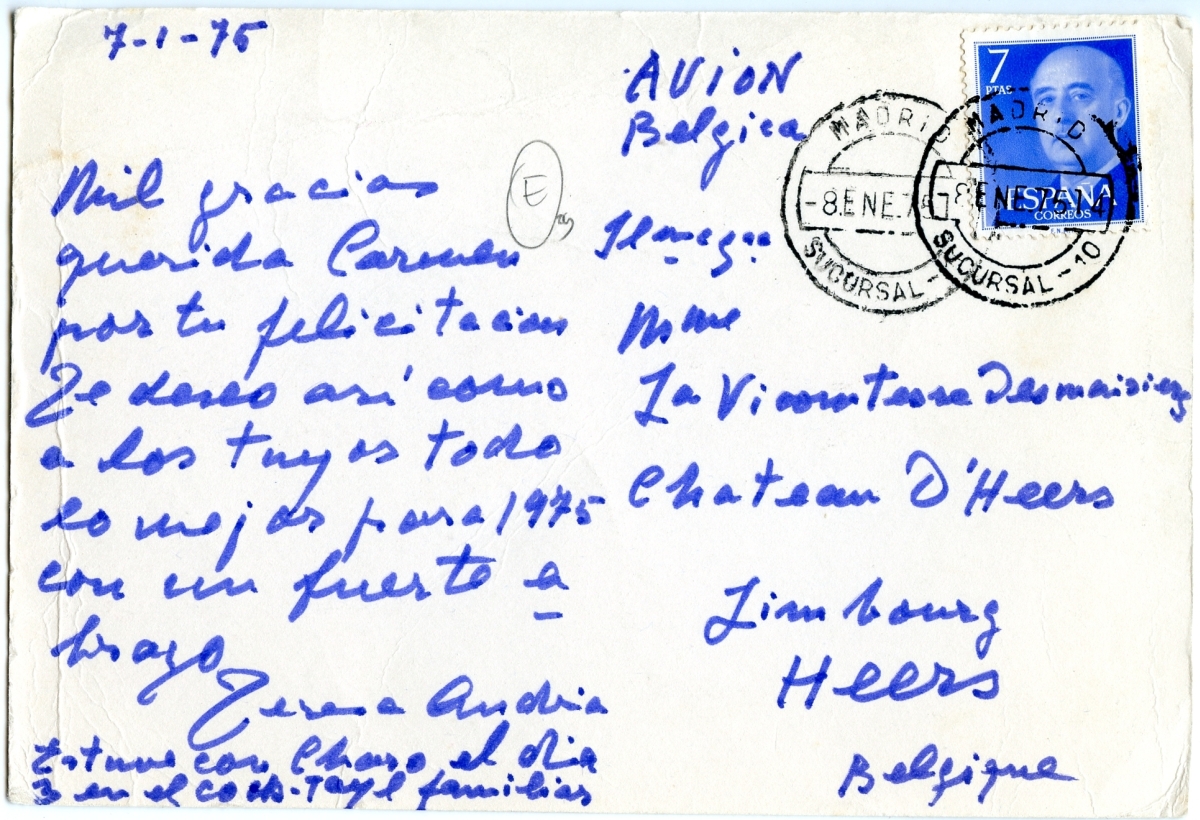 7-1-75
Mil gracias
querida Carmen
por tu felicitacion
Te deseo así como
a los tuyos todo
lo mejor para 1975
con un fuerte a
brazo
Teresa Andria
Estuve con Charo el dia
3 en el cock-tayl familias
E
AVION
Belgica
Mme
La Vicomtesse Desmaisieres
Chateau D'Heers
Limbourg
Heers
Belgique
7
PTAS
ESPAÑA
CORREOS
MADRID
-8.ENE.75
SUCURSAL-
MADRID
-8.ENE.75.14
SUCURSAL-10